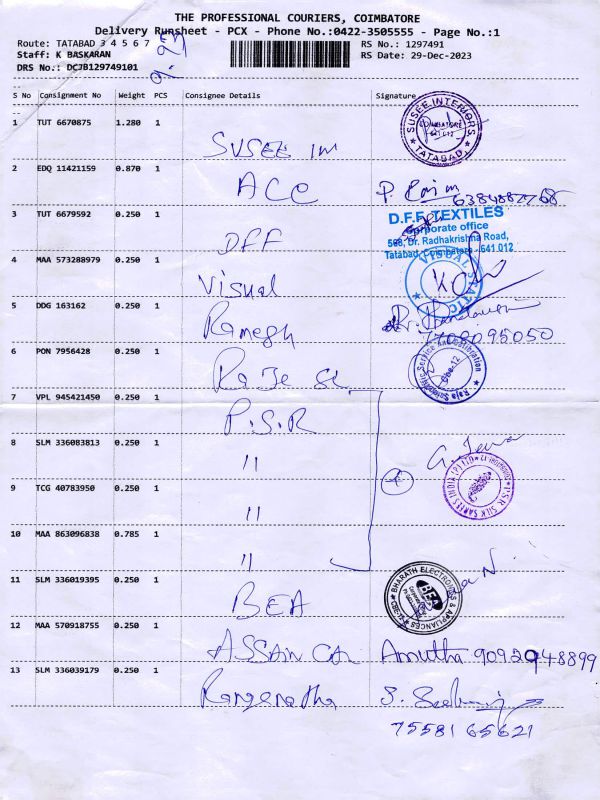 THE PROFESSIONAL COURIERS, COIMBATORE
Delivery Runsheet - PCX - Phone No.:0422-3505555 - Page No.:1
Route: TATABAD 3 4 5 6 7
RS No.: 1297491
Staff: K BASKARAN
RS Date: 29-Dec-2023
DRS No.: DCJB129749101
S No Consignment No Weight PCS Consignee Details Signature
1 TUT 6670875 1.280 1
SUSEE Im
SUSEE INTERIORS
COIMBATORE
641 012
TATABAD
2 EDQ 11421159 0.870 1
ACC
P.
3 TUT 6679592 0.250 1
DFF
D.F.F TEXTILES
Corporate office
568, Dr. Radhakrishna Road,
Tatabad, Coimbatore - 641 012
4 MAA 573288979 0.250 1
Visual
VISUAL
5 DDG 163162 0.250 1
Ramesh
7708095050
6 PON 7956428 0.250 1
RaJe Sc
Raja Scientific Service and Calibration
Cbe-12
7 VPL 945421450 0.250 1
P.S.R
8 SLM 336083813 0.250 1
"
9 TCG 40783950 0.250 1
"
P.S.R SILK SAREES INDIA (P) LTD
10 MAA 863096838 0.785 1
"
11 SLM 336019395 0.250 1
BEA
BHARATH ELECTRONICS & APPLIANCES
BEA
12 MAA 570918755 0.250 1
ASSAN Car
Amutha 9092948899
13 SLM 336039179 0.250 1
Ranganatha
7558165621